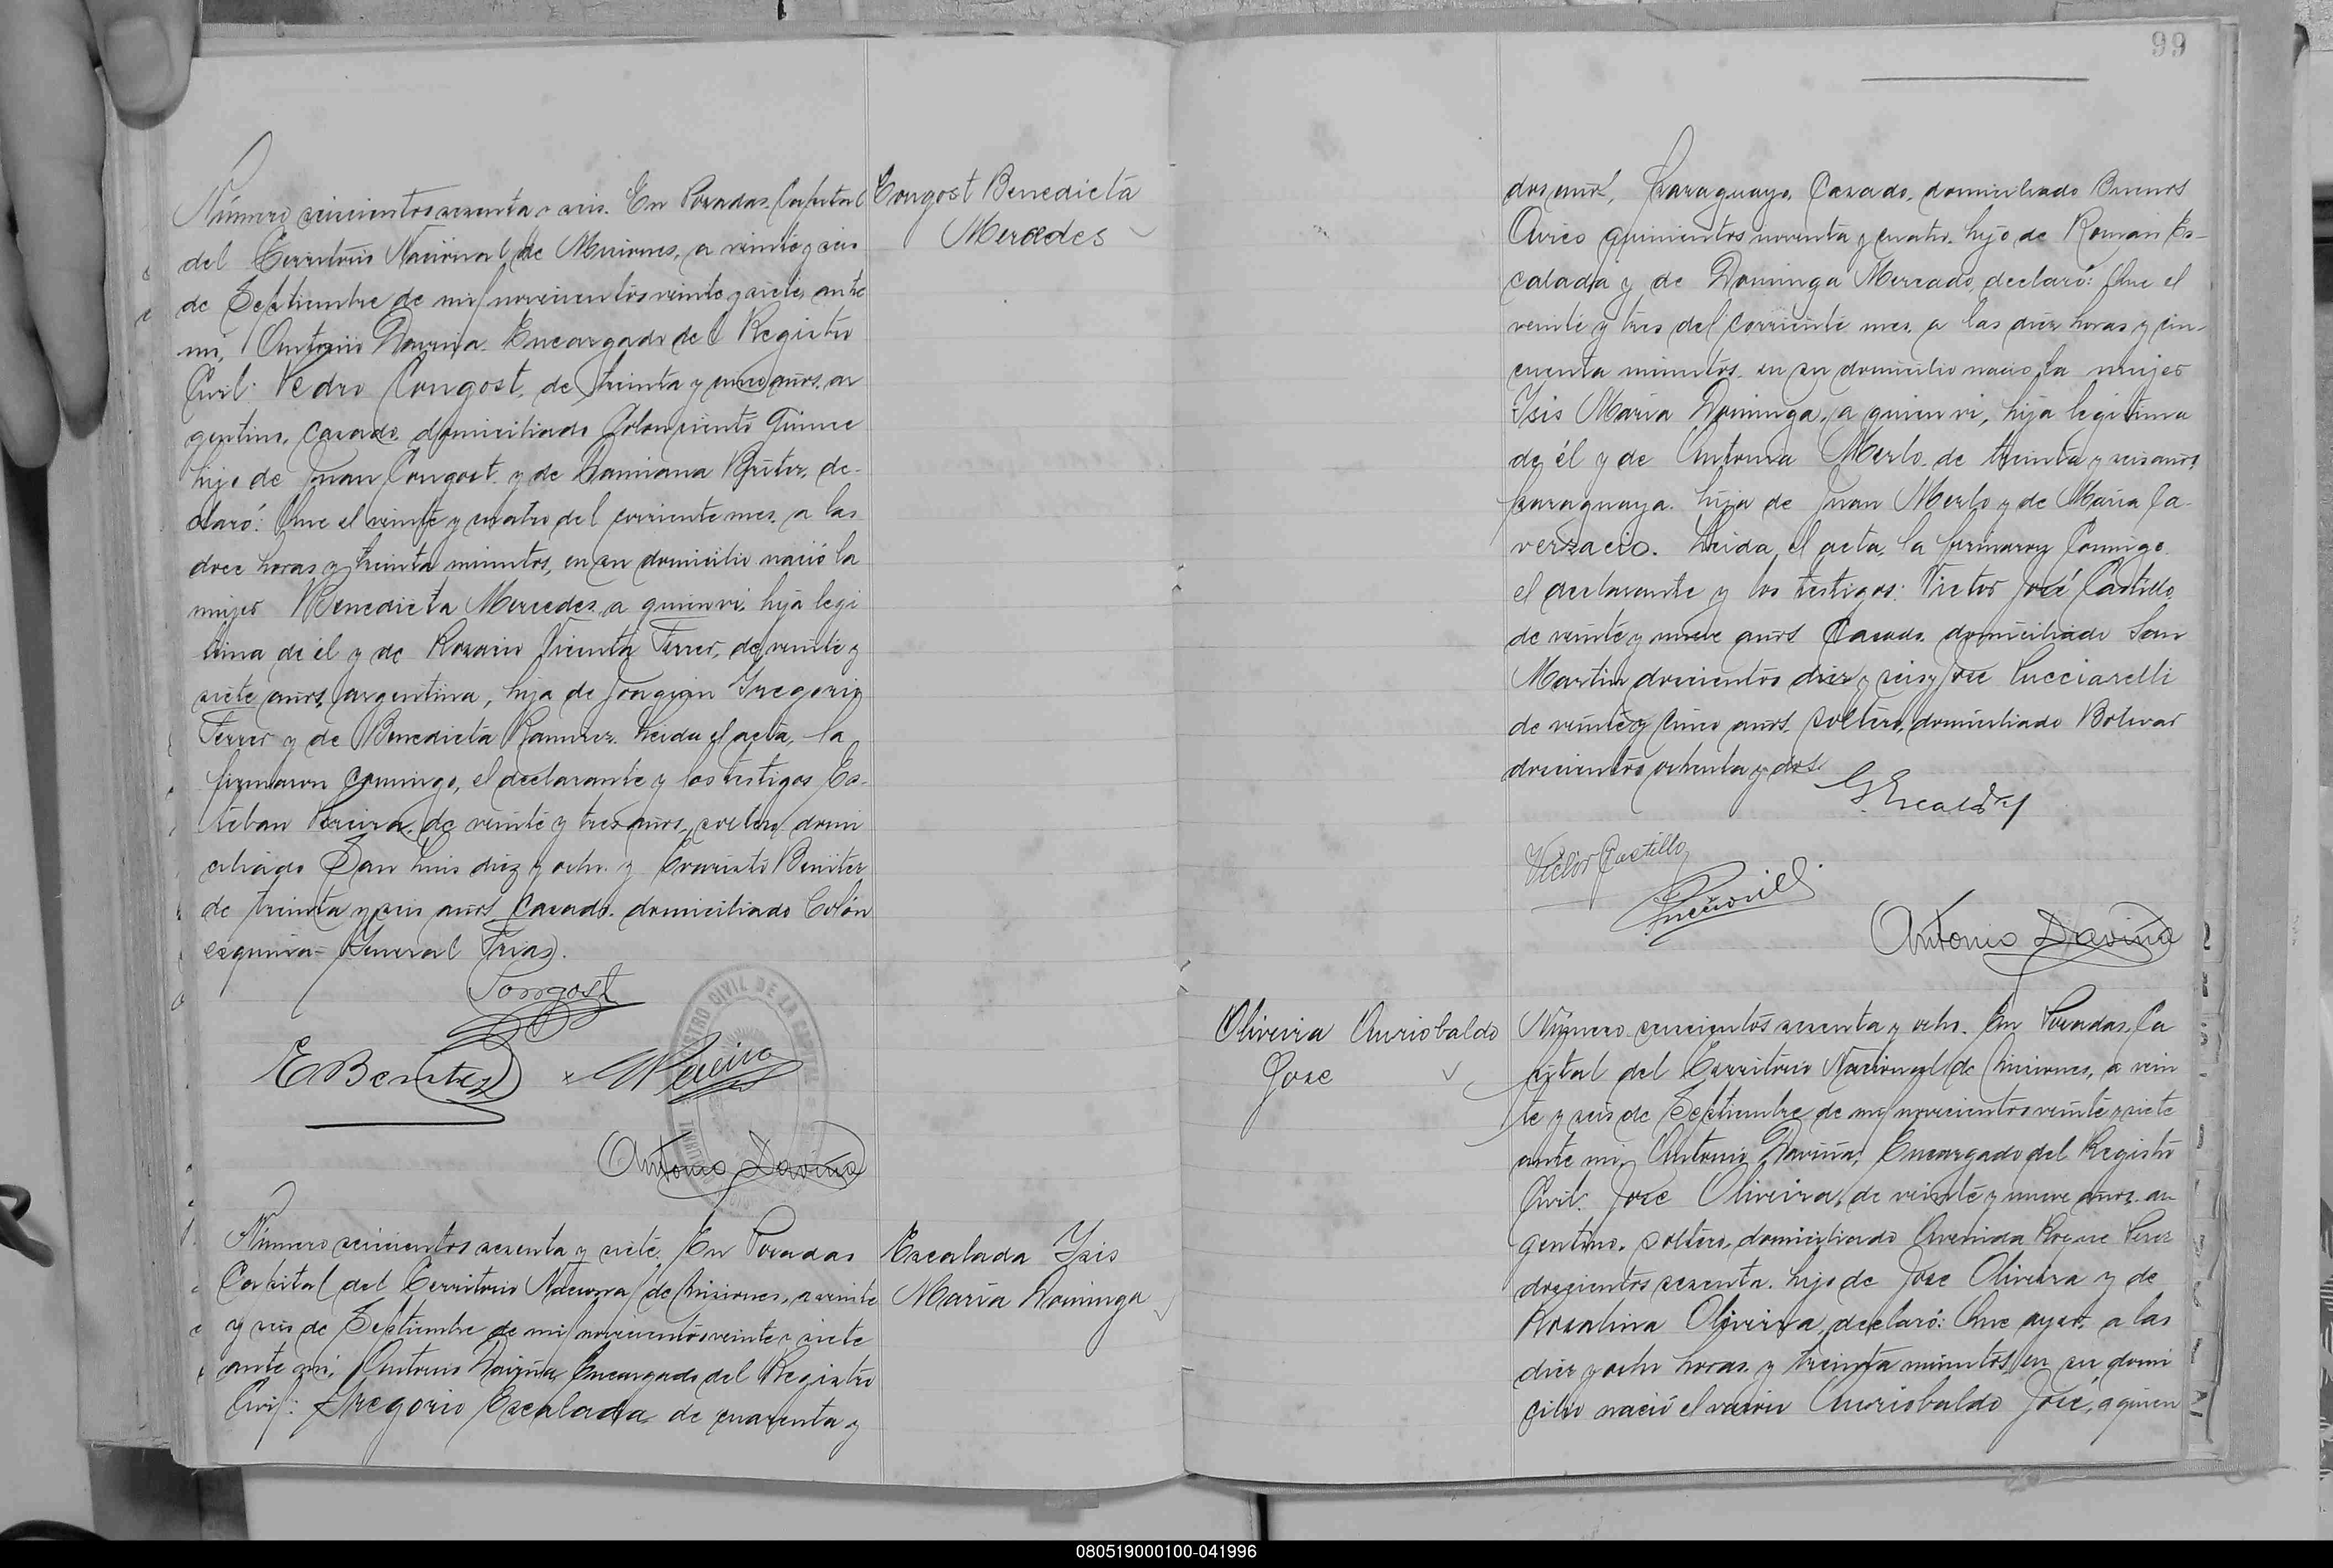 99
Número seiscientos sesenta y seis. En Posadas Capital
del Territorio Nacional de Misiones, a veinte y seis
de Septiembre de mil novecientos veinte y siete, ante
mí, Antonio Daviña Encargado del Registro
Civil: Pedro Congost, de treinta y cinco años, ar
gentino, casado, domiciliado Colon ciento quince
hijo de Juan Congost y de Damiana Brítez, de-
claró: Que el veinte y cuatro del corriente mes, a las
doce horas y treinta minutos, en su domicilio nació la
mujer Benedicta Mercedes, a quien vi, hija legi
tima de él y de Rosario Vicenta Ferrer, de veinte y
siete años, argentina, hija de Joaquin Gregorio
Ferrer y de Benedicta Ramirez. Leida el acta, la
firmaron conmigo, el declarante y los testigos Es-
teban Pereira, de veinte y tres años, soltero, domi
ciliado San Luis diez y ocho y Evaristo Benitez
de treinta y seis años, casado, domiciliado Colón
esquina General Frias.
Congost
E Benitez
Antonio Daviña
Congost Benedicta
Mercedes
Número seiscientos sesenta y siete. En Posadas
Capital del Territorio Nacional de Misiones, a veinte
y seis de Septiembre de mil novecientos veinte y siete
ante mi, Antonio Daviña Encargado del Registro
Civil: Gregorio Escalada de cuarenta y
Escalada Ysis
María Dominga
dos años, paraguayo, casado, domiciliado Buenos
Aires quinientos noventa y cuatro, hijo de Román Es-
calada y de Dominga Mercado, declaró: Que el
veinte y tres del corriente mes, a las diez horas y cin-
cuenta minutos, en su domicilio nació la mujer
Ysis María Dominga, a quien vi, hija legitima
de él y de Antonia Merlo, de treinta y seis años,
paraguaya, hija de Juan Merlo y de María Ca
versacio. Leida el acta, la firmaron conmigo
el declarante y los testigos: Victor José Castillo,
de veinte y nueve años casado, domiciliado San
Martin doscientos diez y seis y Jose Lucciarelli
de veinte y cinco años, soltero, domiciliado Bolivar
doscientos ochenta y dos.
G Escalada
Victor Castillo
Antonio Daviña
Oliveira Auriobaldo
Jose
Número seiscientos sesenta y ocho. En Posadas, Ca
pital del Territorio Nacional de Misiones, a vein
te y seis de Septiembre de mil novecientos veinte y siete
ante mi, Antonio Daviña, Encargado del Registro
Civil: Jose Oliveira, de veinte y nueve años, ar
gentino, soltero, domiciliado Avenida Roque Perez
doscientos sesenta, hijo de Jose Oliveira y de
Rosalina Oliveira, declaró: Que ayer, a las
diez y ocho horas y treinta minutos, en su domi
cilio nació el varon Auriobaldo José, a quien
080519000100-041996